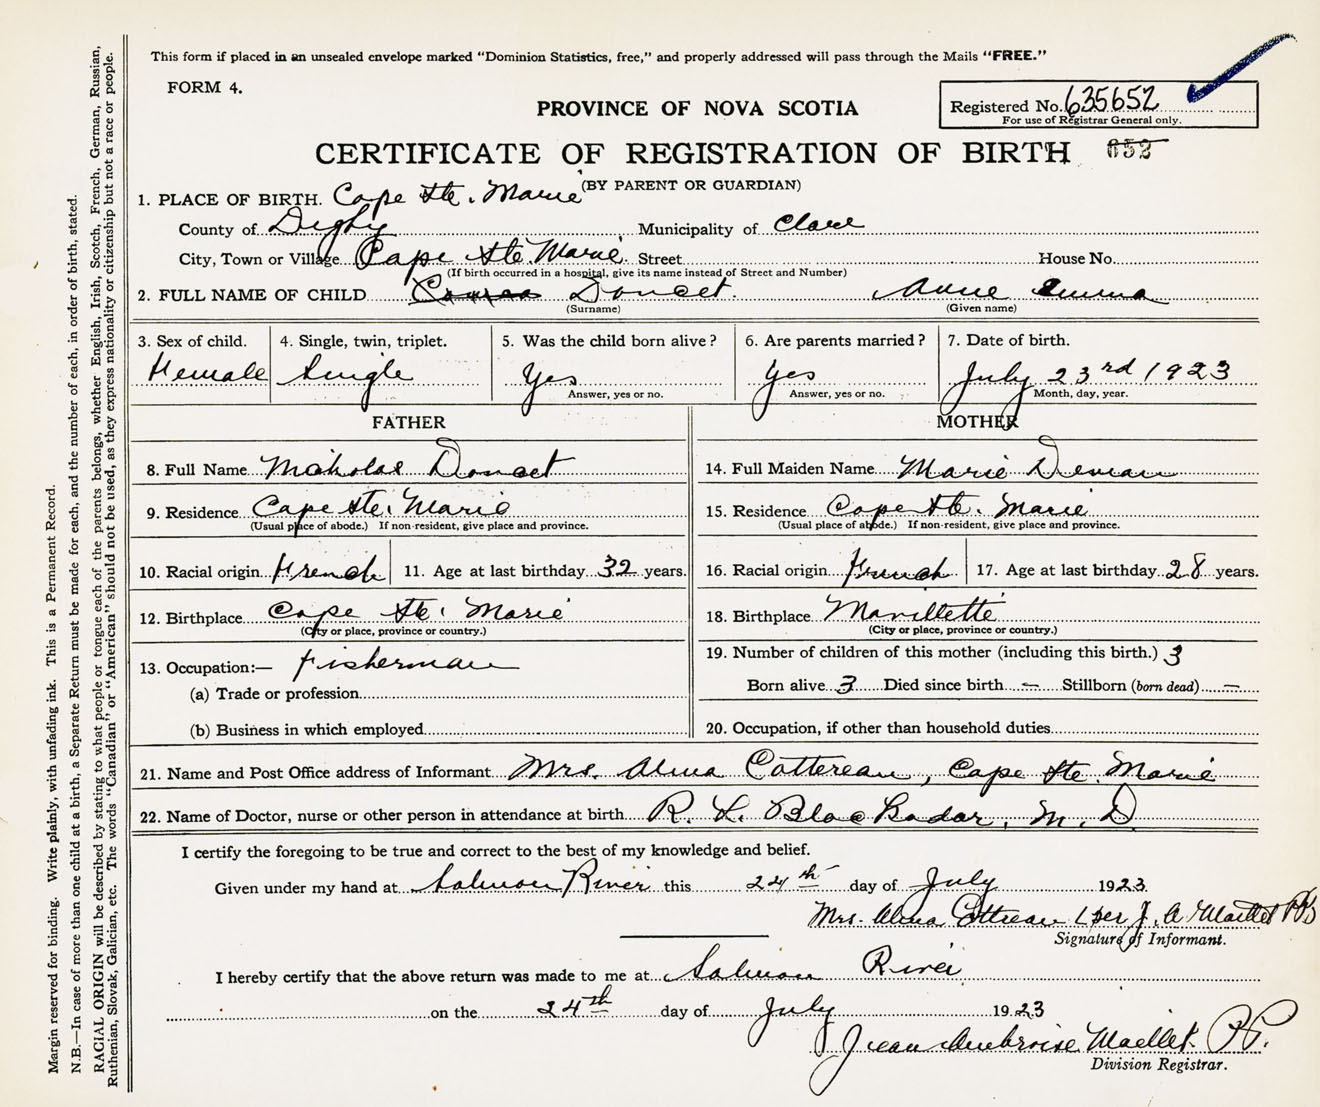 This form if placed in an unsealed envelope marked "Dominion Statistics, free," and properly addressed will pass through the Mails "FREE."
FORM 4.
Registered No. 635652
For use of Registrar General only.
PROVINCE OF NOVA SCOTIA
CERTIFICATE OF REGISTRATION OF BIRTH 652
(BY PARENT OR GUARDIAN)
1. PLACE OF BIRTH. Cape Ste. Marie
County of Digby Municipality of Clare
City, Town or Village Cape Ste. Marie Street House No.
(If birth occurred in a hospital, give its name instead of Street and Number)
2. FULL NAME OF CHILD Doucet. Anne Emma
(Surname) (Given name)
3. Sex of child. 4. Single, twin, triplet. 5. Was the child born alive? 6. Are parents married? 7. Date of birth.
Female Single Yes Yes July 23rd 1923
Answer, yes or no. Answer, yes or no. Month, day, year.
FATHER MOTHER
8. Full Name Nicholas Doucet 14. Full Maiden Name Marie
9. Residence Cape Ste. Marie 15. Residence Cape Ste. Marie
(Usual place of abode.) If non-resident, give place and province. (Usual place of abode.) If non-resident, give place and province.
10. Racial origin French 11. Age at last birthday 32 years. 16. Racial origin French 17. Age at last birthday 28 years.
12. Birthplace Cape Ste. Marie 18. Birthplace Mavillette
(City or place, province or country.) (City or place, province or country.)
13. Occupation:— Fisherman 19. Number of children of this mother (including this birth.) 3
(a) Trade or profession Born alive 3 Died since birth — Stillborn (born dead) —
(b) Business in which employed 20. Occupation, if other than household duties
21. Name and Post Office address of Informant Mrs. Alma Cottereau, Cape Ste. Marie
22. Name of Doctor, nurse or other person in attendance at birth R. L. Blackadar, M. D
I certify the foregoing to be true and correct to the best of my knowledge and belief.
Given under my hand at Salmon River this 24th day of July 1923
Mrs. Alma Cottreau per J. A. Maillet
Signature of Informant.
I hereby certify that the above return was made to me at Salmon River
on the 24th day of July 1923
Jean Ambroise Maillet P.P.
Division Registrar.
Margin reserved for binding. Write plainly, with unfading ink. This is a Permanent Record.
N.B.—In case of more than one child at a birth, a Separate Return must be made for each, and the number of each, in order of birth, stated.
RACIAL ORIGIN will be described by stating to what people or tongue each of the parents belongs, whether English, Irish, Scotch, French, German, Russian,
Ruthenian, Slovak, Galician, etc. The words "Canadian" or "American" should not be used, as they express nationality or citizenship but not a race or people.